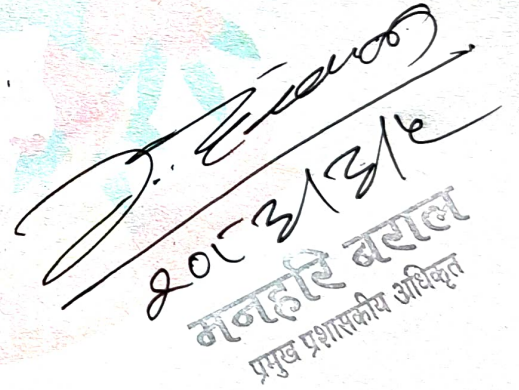 २०८३/३/५
मनहरि बराल
प्रमुख प्रशासकीय अधिकृत